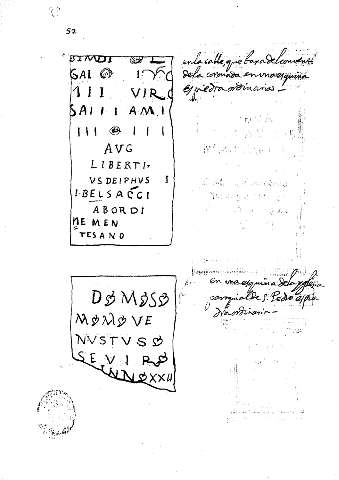 52
BIMDI L
SAI I
III VIRO
SAIII AMI
III III
AVG
LIBERTI.
VSDEIPHVS I
I.BELSACCI
ABORDI
NEMEN
TESANO
en la calle, que baxa del convento
de la coronada en una esquina
es piedra ordinaria.
D M S
M M VE
NVSTVS
SEVIR
NN XXII
en una esquina de la yglesia
parroquial de S. Pedro es pie
dra ordinaria.